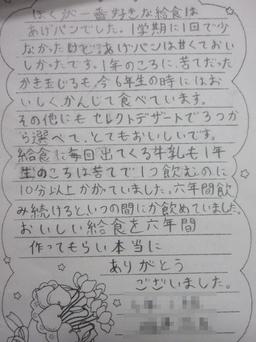 ぼくが一番好きな給食は
あげパンでした。1学期に1回で少
なかったけどあげパンは甘くておい
しかったです。1年のころに、苦てだった
かき玉じるも、今6年生の時にはお
いしくかんじて食べています。
その他にもセレクトデザートで3つか
ら選べて、とてもおいしいです。
給食に毎回出てくる牛乳も1年
生のころは苦てで1つ飲むのに
10分以上かかっていました。六年間飲
み続けるといつの間にか飲めていました。
おいしい給食を六年間
作ってもらい本当に
ありがとう
ございました。